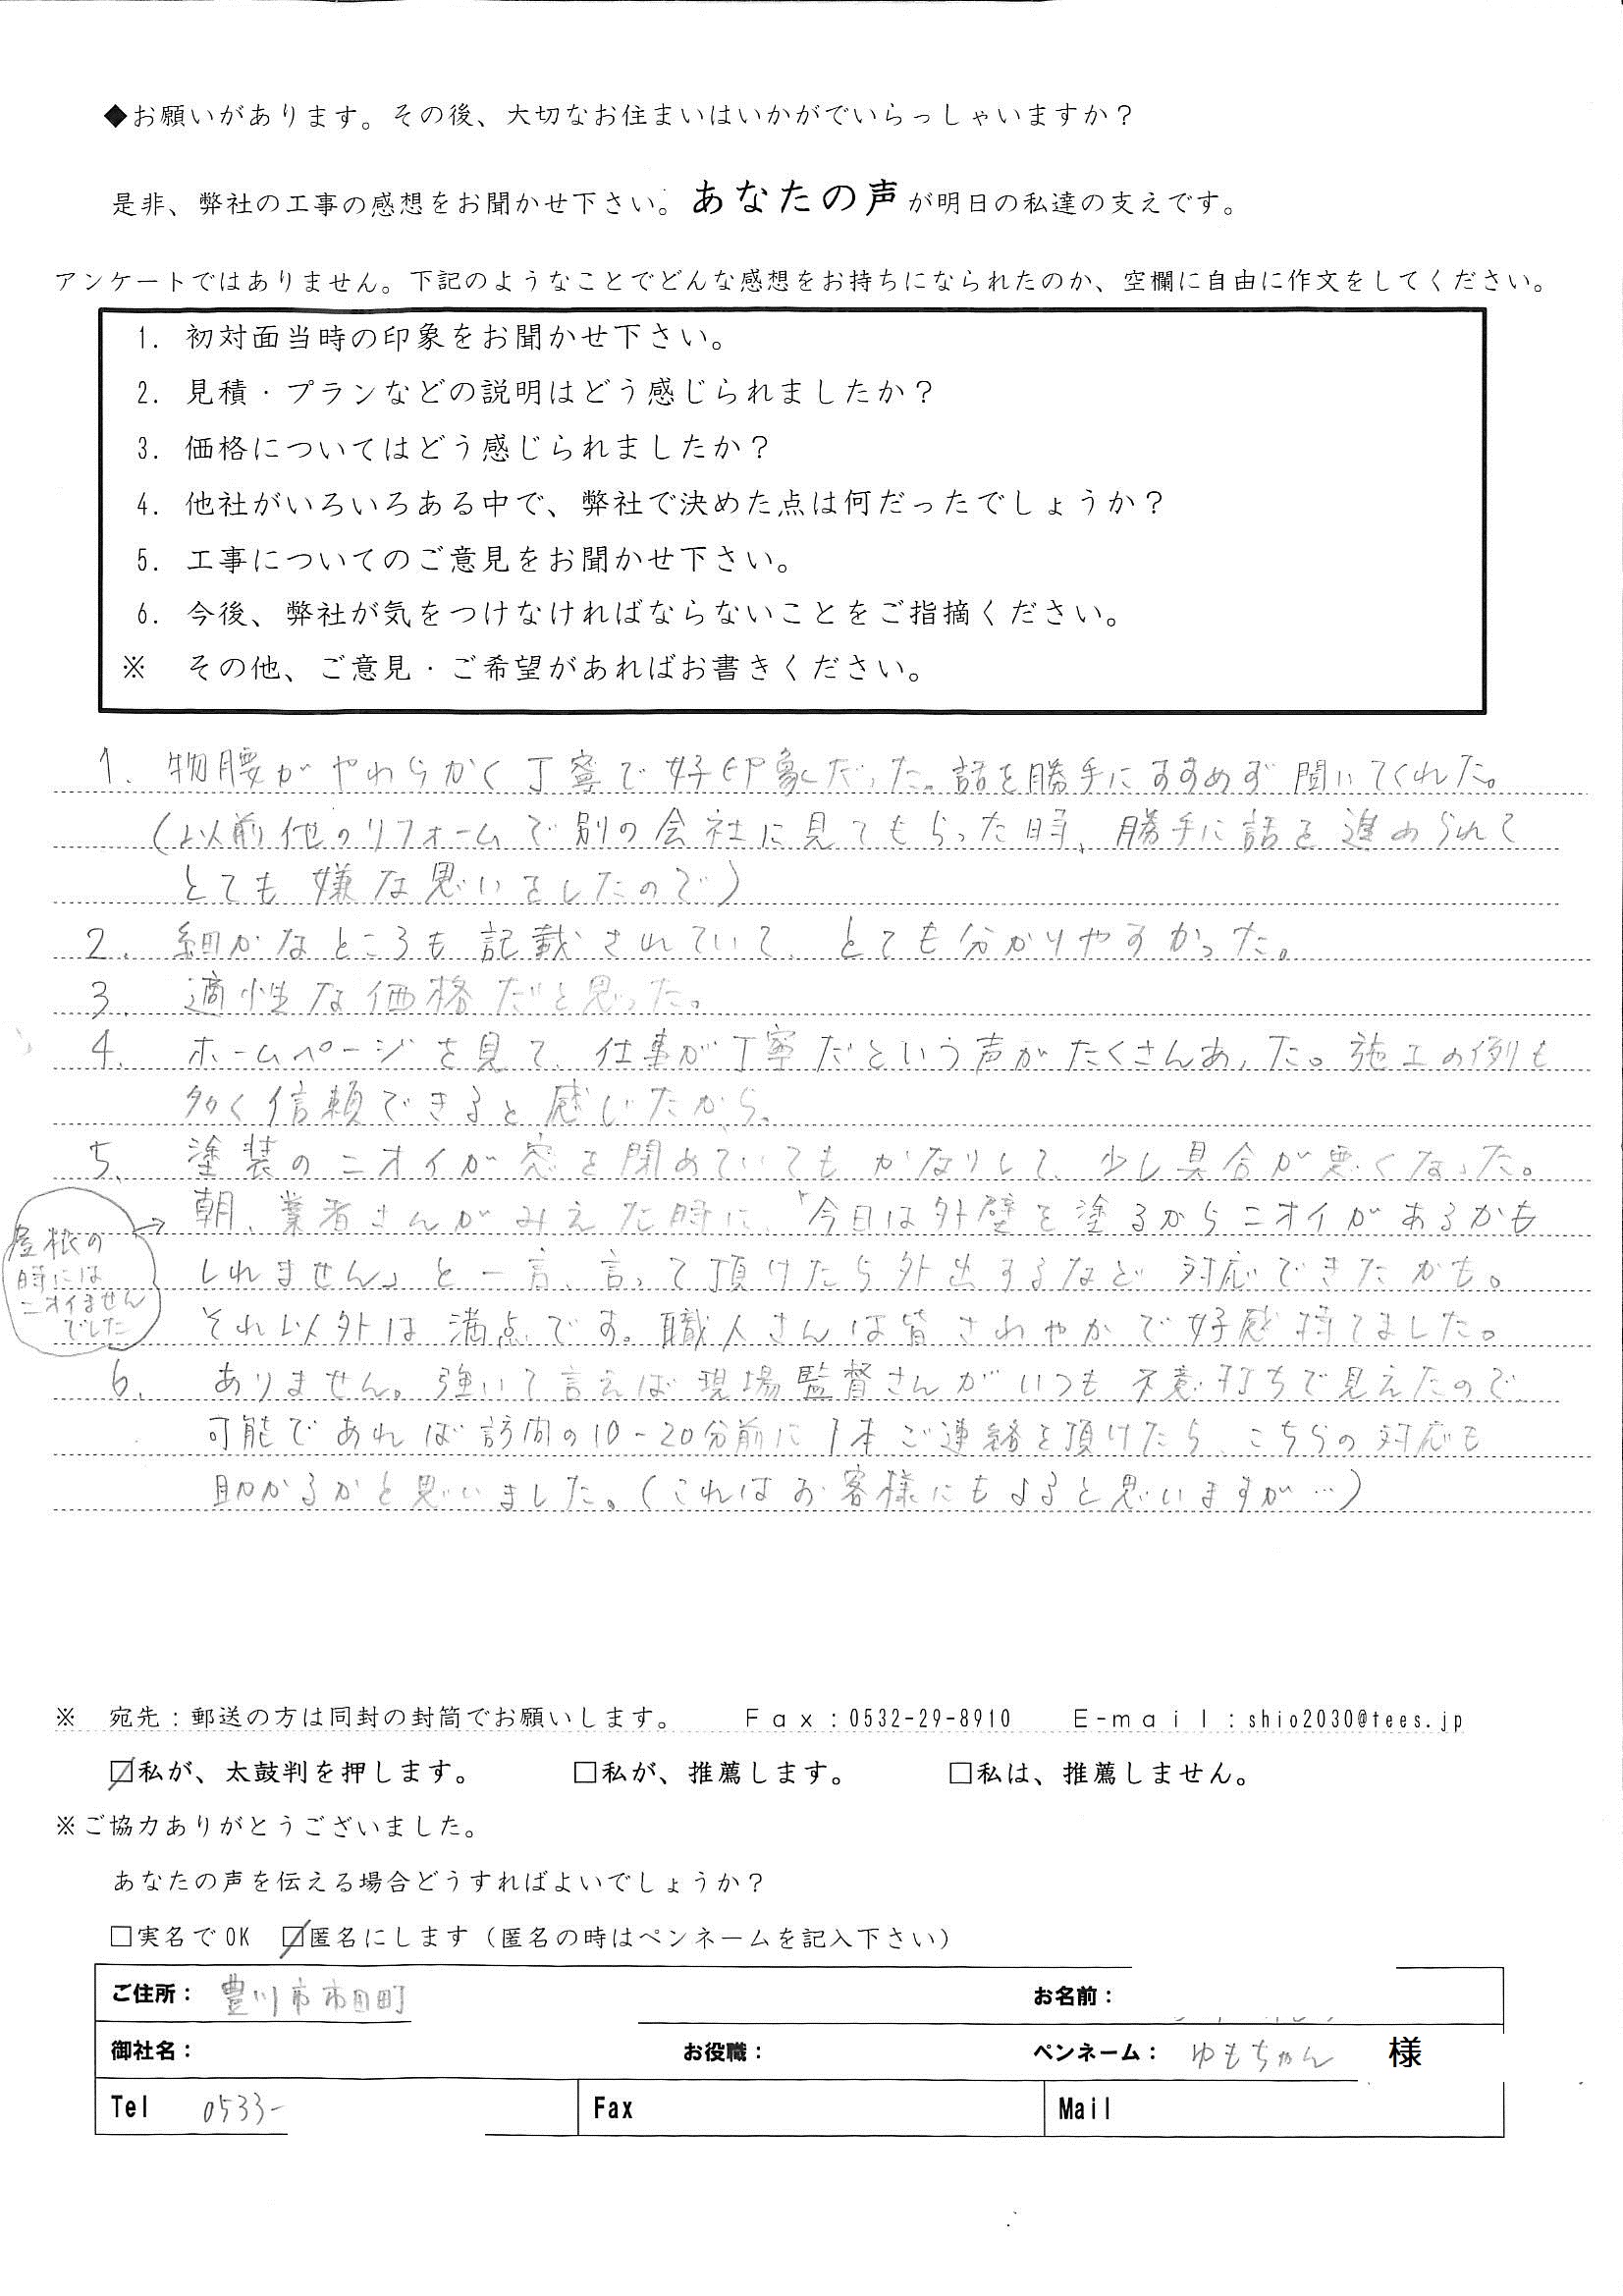 ◆お願いがあります。その後、大切なお住まいはいかがでいらっしゃいますか？
是非、弊社の工事の感想をお聞かせ下さい。あなたの声が明日の私達の支えです。
アンケートではありません。下記のようなことでどんな感想をお持ちになられたのか、空欄に自由に作文をしてください。
1. 初対面当時の印象をお聞かせ下さい。
2. 見積・プランなどの説明はどう感じられましたか？
3. 価格についてはどう感じられましたか？
4. 他社がいろいろある中で、弊社で決めた点は何だったでしょうか？
5. 工事についてのご意見をお聞かせ下さい。
6. 今後、弊社が気をつけなければならないことをご指摘ください。
※ その他、ご意見・ご希望があればお書きください。
1. 物腰がやわらかく丁寧で好印象だった。話を勝手にすすめず聞いてくれた。
（以前他のリフォームで別の会社に見てもらった時、勝手に話を進められて
とても嫌な思いをしたので）
2. 細かなところも記載されていて、とても分かりやすかった。
3. 適性な価格だと思った。
4. ホームページを見て、仕事が丁寧だという声がたくさんあった。施工の例も
多く信頼できると感じたから。
5. 塗装のニオイが窓を閉めていてもかなりして、少し具合が悪くなった。
朝、業者さんがみえた時に、「今日は外壁を塗るからニオイがあるかも
しれません」と一言、言って頂けたら外出するなど対応できたかも。
それ以外は満点です。職人さんは皆さわやかで好感持てました。
屋根の
時には
ニオイません
でした
6. ありません。強いて言えば現場監督さんがいつも不意打ちで見えたので、
可能であれば訪問の10-20分前に1本ご連絡を頂けたら、こちらの対応も
助かるかと思いました。（これはお客様にもよると思いますが…）
※ 宛先：郵送の方は同封の封筒でお願いします。 Fax：0532-29-8910 E-mail：shio2030@tees.jp
☑私が、太鼓判を押します。 □私が、推薦します。 □私は、推薦しません。
※ご協力ありがとうございました。
あなたの声を伝える場合どうすればよいでしょうか？
□実名でOK ☑匿名にします（匿名の時はペンネームを記入下さい）
ご住所： 豊川市市田町 お名前：
御社名： お役職： ペンネーム： ゆもちゃん 様
Tel 0533- Fax Mail